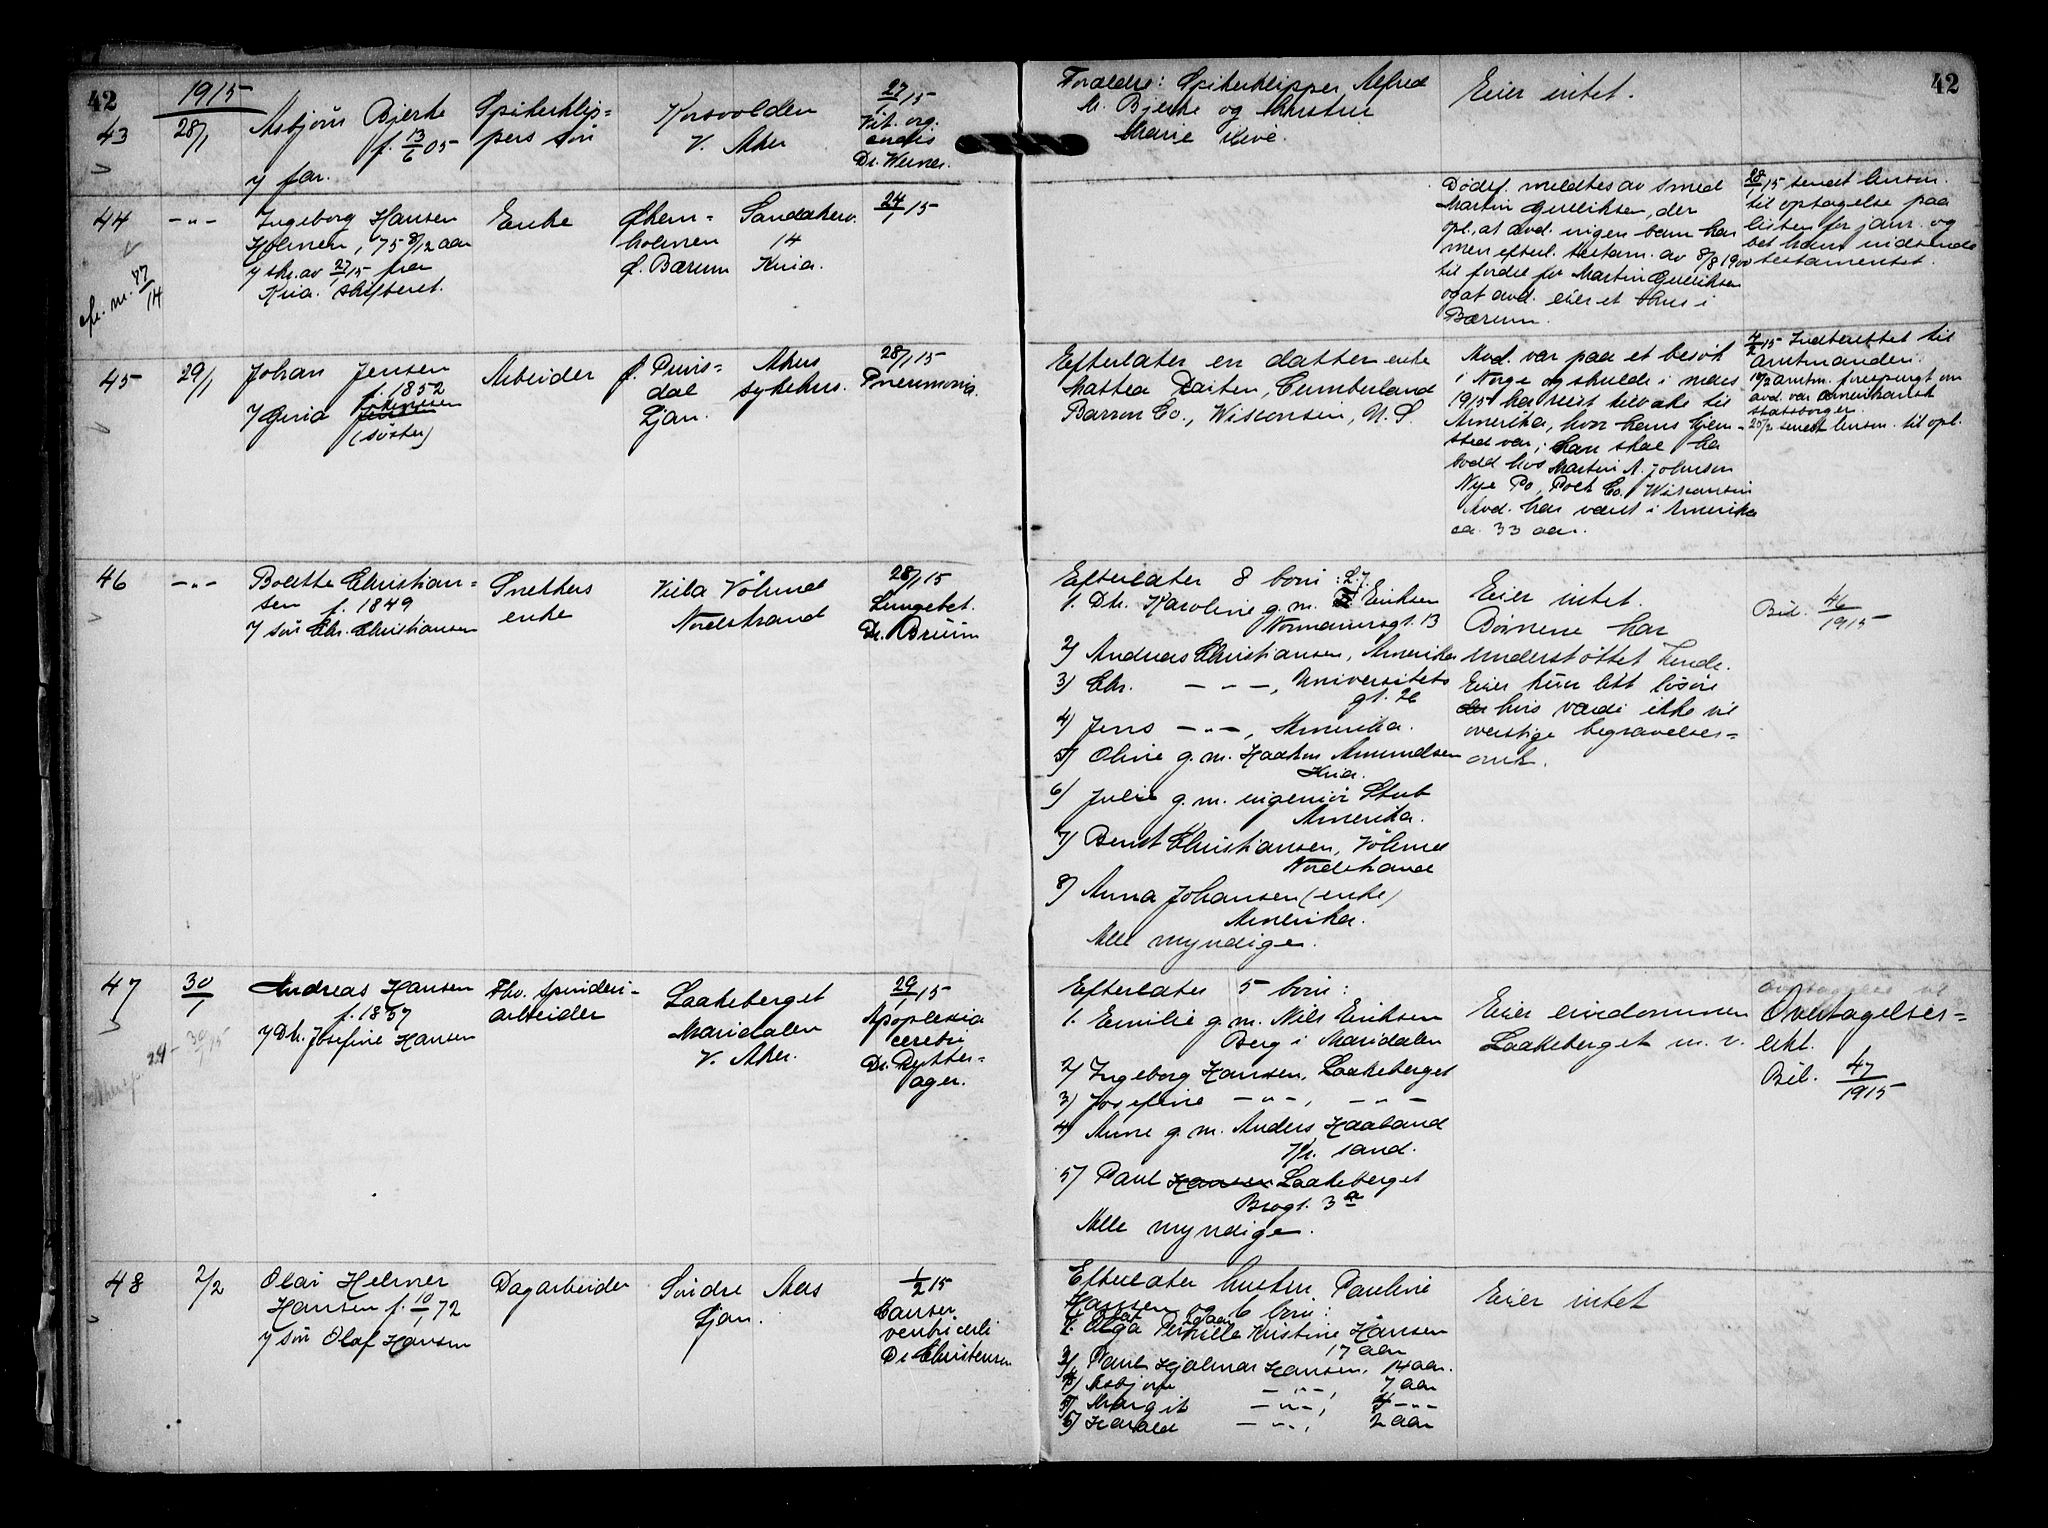 42
1915
43
28/1
Asbjörn Bjerke
f. 13/6 05
y far.
Spikerklip=
pers sön
Korsvolden
V. Aker
27/1 15
Vit. org.
cordis
Dr. Werner.
Forældre: Spikerklipper Alfred
M. Bjerke og hustru
Marie
Eier intet.
42
44
-"-
Ingeborg Hansen
Holmen, 75 8/12 aar
y skr. av 27/1 15 fra
Kria. skifteret.
cfr. nr. 87/14
Enke
holmen
Ø. Bærum
Sandakerv.
14
Kria.
24/1 15
Dödsf. meldtes av smed
Martin Gulliksen, der
opl. at avd. ingen barn har
men efterl. testam. av 8/8 1900
til fordel for Martin Gulliksen
og at avd. eier et hus i
Bærum.
28/1 15 sendt lensm.
til optagelse paa
listen for jan. og
bet ham indsende
testamentet.
45
29/1
Johan Jensen
f. 1852
Johnsen
(söster)
Arbeider
Ljan.
Akers
sykehus.
28/1 15
Pneumonia.
Efterlater en datter enke
Mattea Larsen, Cumberland
Barron Co., Wisconsin, U. S.
Avd. var paa et besök
i Norge og skulde i mars
1915 ha reist tilbake til
Amerika, hvor hans hjem-
sted var; han skal ha
bodd hos Martin A. Johnsen
Nye Po, Polk Co. Wisconsin
Avd. har været i Amerika
ca. 33 aar.
4/2 15 Indberettet til
amtmanden.
amtm. forespurgt om
avd. var amerikansk
statsborger.
20/2 sendt lensm. til opl.
46
-"-
Bolette Christian=
sen f. 1849
y sön Chr. Christiansen
Snekkers
enke
Villa Völund
Nordstrand
28/1 15
Lungebet.
Dr. Bruun
Efterlater 8 barn: L.f.
1. Dk. Karoline g. m. Eriksen
Normannsgt. 13
2) Andreas Christiansen, Amerika
3) Chr. -"-, Universitets
gt. 26
4) Jens -"-, Amerika.
5) Oline g. m. Haakon Amundsen
Kria.
6) Julie g. m. ingeniör Stub
Amerika.
7) Bernt Christiansen, Völund
Nordstrand
8) Anna Johansen (enke)
Amerika.
Alle myndige.
Eier intet.
Börnene har
understöttet hende.
Eier kun litt lösöre
hvis værdi ikke vil
overstige begravelses=
omk.
Bil. 46/1915
47
30/1
Andreas Hansen
f. 1857
y Dtr. Josefine Hansen
Fhv. spinderi-
arbeider
Laakeberget
Maridalen
V. Aker.
29/1 15
Apoplexia
cerebri
Dr. Rytter=
ager.
Efterlater 5 barn:
1. Emilie g. m. Nils Eriksen
Berg i Maridalen
2) Ingeborg Hansen, Laakeberget
3) Josefine -"-, -"-
4) Anne g. m. Anders Haaland
Kr. sand.
5) Paul Hansen Laakeberget
Brogt. 3a
Alle myndige.
Eier eiendommen
Laakeberget m. v.
Overtagelses=
erkl.
Bil. 47/1915
48
2/2
Olai Helmer
Hansen f. 10/1 72
y sön Olaf Hansen
Dagarbeider
Söndre Aas
Ljan.
1/2 15
Cancer
ventriculi
Dr Christensen
Efterlater hustru Pauline
Hansen og 6 barn:
1. Olaf
2. Olga Pernille Kristine Hansen
17 aar
3) Paul Hjalmar Hansen, 14 aar.
4) Asbjörn -"-, 7 aar
5) Margit -"-, 4 -"-
6) Harald -"-, 2 aar
Eier intet